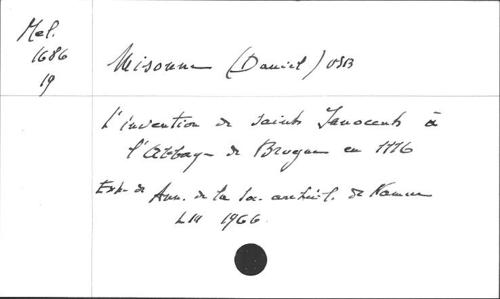 Mel.
1686
19
Misonne (Daniel) OSB
L'invention de saints Innocents à
l'Abbaye de Brogne en 1116
Extr. de Ann. de la Soc. archéol. de Namur
LIII 1966